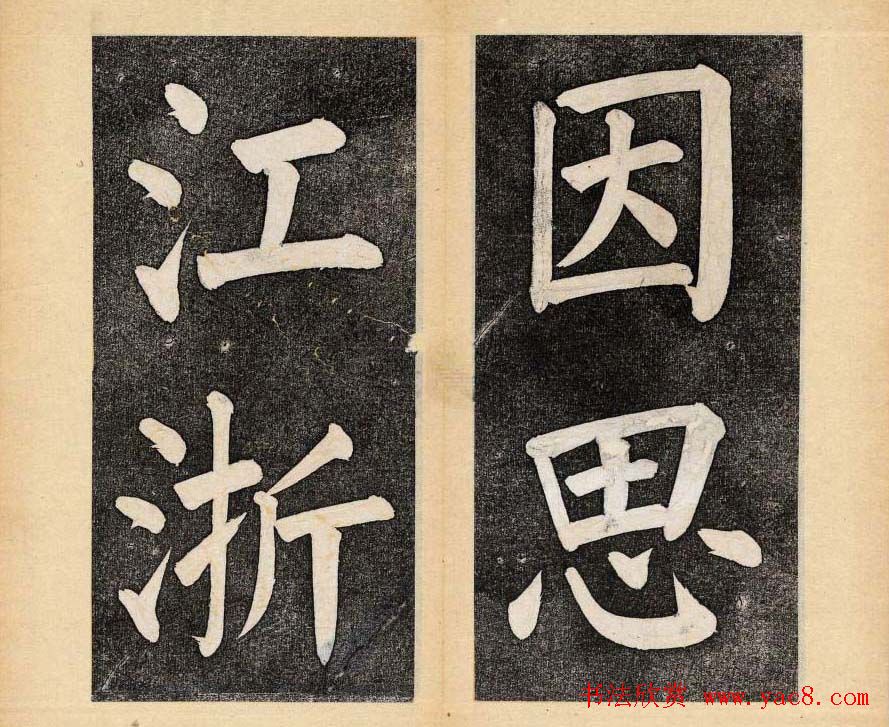 因思
江浙
书法欣赏 www.yac8.com